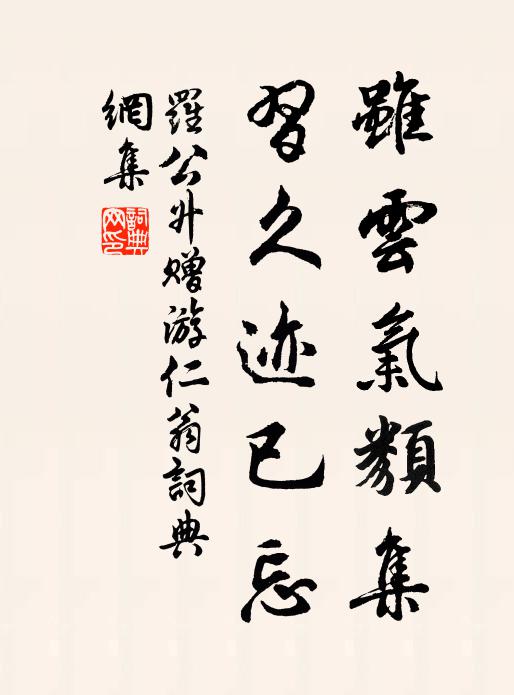 雖雲氣類集
習久迹已忘
羅公升贈游仁翁詞典
網集
詞典網印